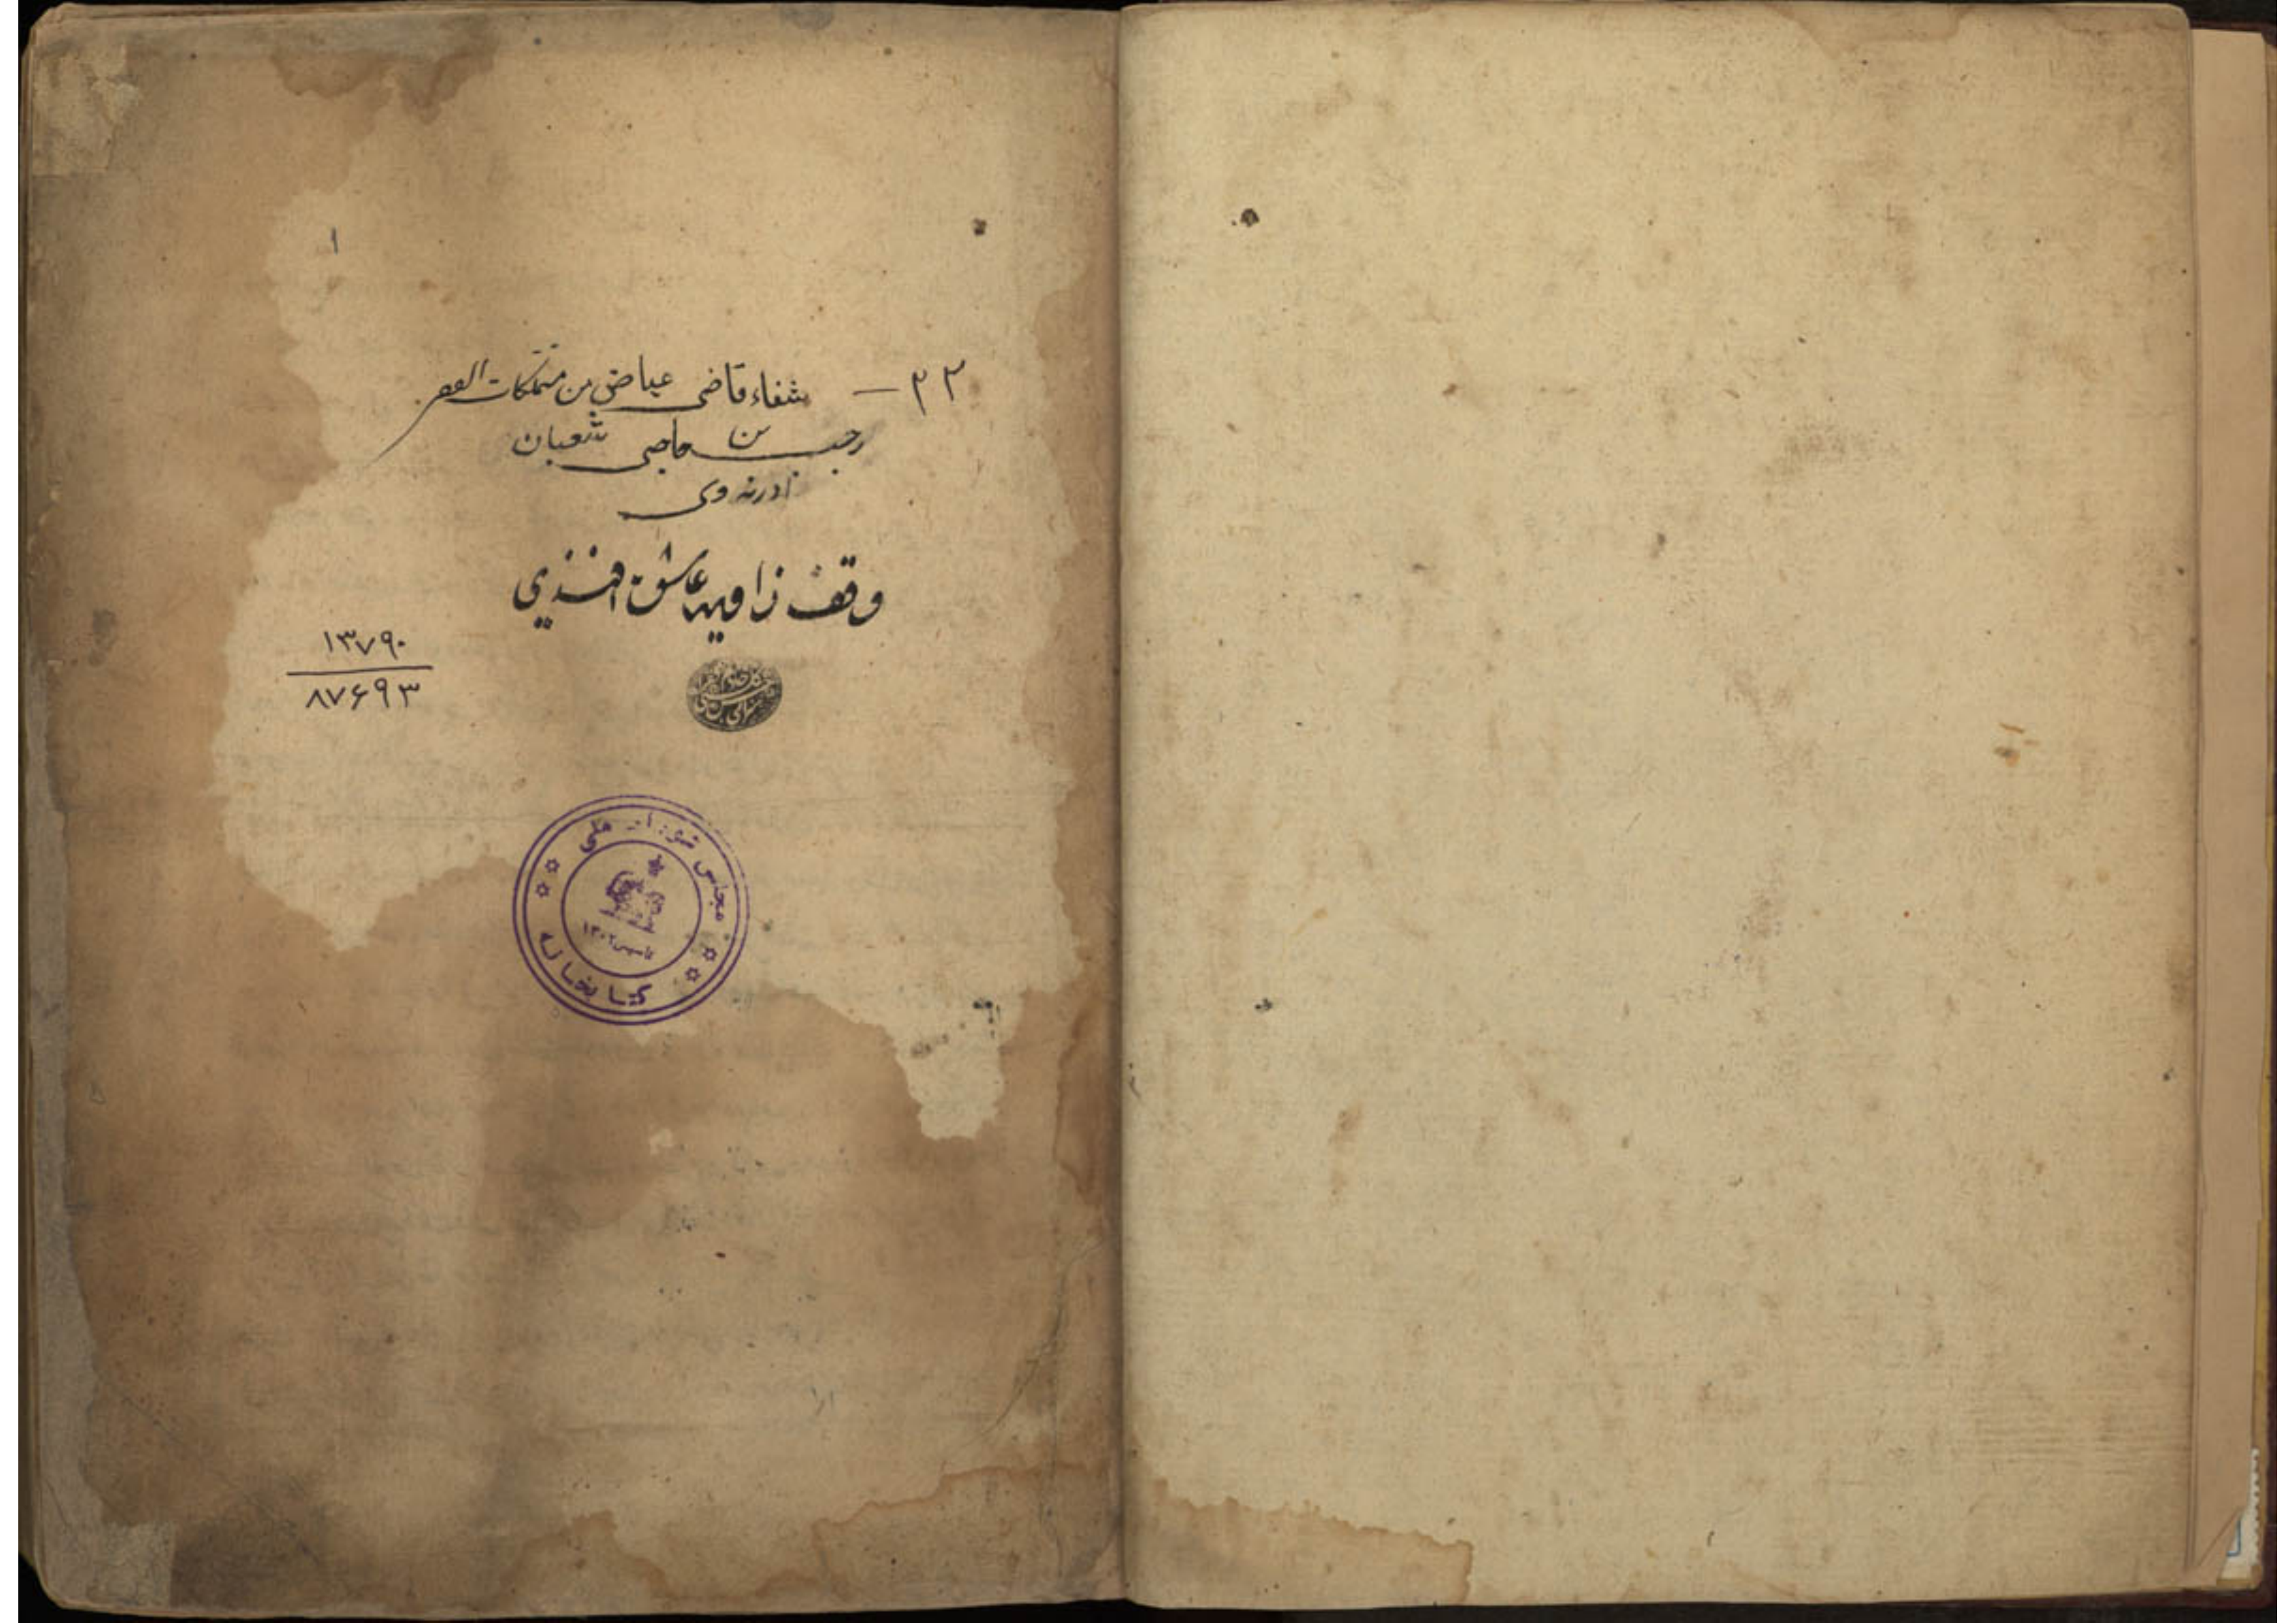 ١
٢٢ — شفاء قاضی عیاض من متملکات الفقیر
رجب بن حاجی شعبان
ادرنه وی
وقف زاویه عاشق افندی
۱۳۷۹۰
۸۷۶۹۳
مجلس شورای ملی
تاسیس ۱۳۰۲
کتابخانه